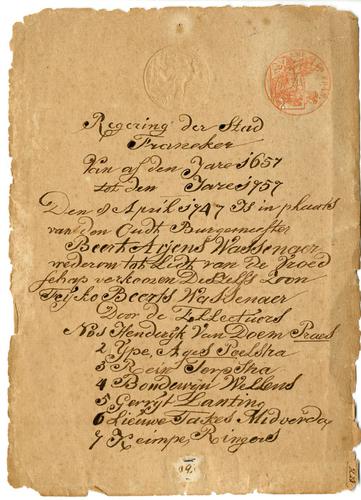 Regering der Stad
Franeker
Van af den Jare 1657
tot den Jare 1757
Den 8 April 1747 Is in plaats
van den Oudt Burgemeester
Beert Arjens Wassenaer
wederom tot Lidt van De Vroed
schap verkooren Deszelfs Soon
Feijko Beerts Wassenaer
Door de Collecteurs
No 1 Henderijk Van Doem Praes
2 Ype, Ages Poelstra
3 Rein Terpstra
4 Boudewijn Wellens
5 Gerryt Lanting
6 Lieuwe Takes Midverda
7 Reimpe, Ringers